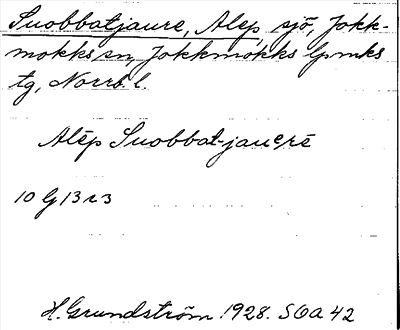 Suobbatjaure, Alep, sjö, Jokk-
mokks sn, Jokkmokks lpmks
tg, Norrb. l.
Alēp Suobbat-jaurē
10 G 13 r 3
H. Grundström 1928. SOA 42